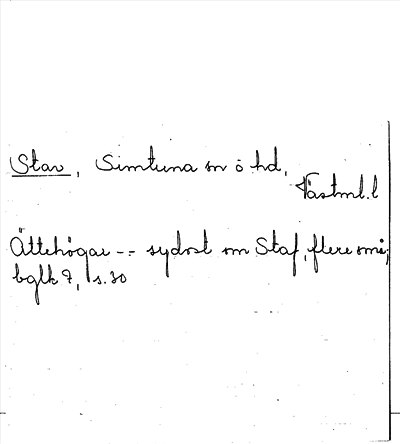 Stav, Simtuna sn o hd,
Västml.l
Ättehögar -- sydost om Staf, flere små,
bglk 7, s. 30